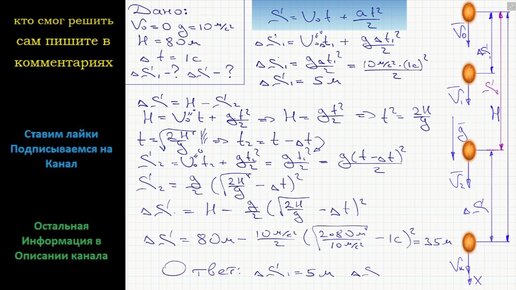 кто смог решить
сам пишите в
комментариях
Ставим лайки
Подписываемся на
Канал
Остальная
Информация в
Описании канала
Дано:
V₀=0 g=10м/с²
H=80м
Δt=1с
ΔS₁-? ΔS-?
S=V₀t+at²/2
ΔS₁=V₀t₁+gΔt₁²/2
ΔS₁=gΔt²/2=10м/с²·(1с)²/2
ΔS₁=5м
ΔS=H-S₂
H=V₀t+gt²/2 ⇒ H=gt²/2 ⇒ t²=2H/g
t=√(2H/g) ⇒ t₂=t-Δt
S₂=V₀t₂+gt₂²/2=gt₂²/2=g(t-Δt)²/2
S₂=g/2(√(2H/g)-Δt)²
ΔS=H-g/2(√(2H/g)-Δt)²
ΔS=80м-10м/с²/2(√(2·80м/10м/с²)-1с)²=35м
Ответ: ΔS₁=5м ΔS
V₀
ΔS₁
S₂
H
V₁
g
V₂
ΔS
Vк
X